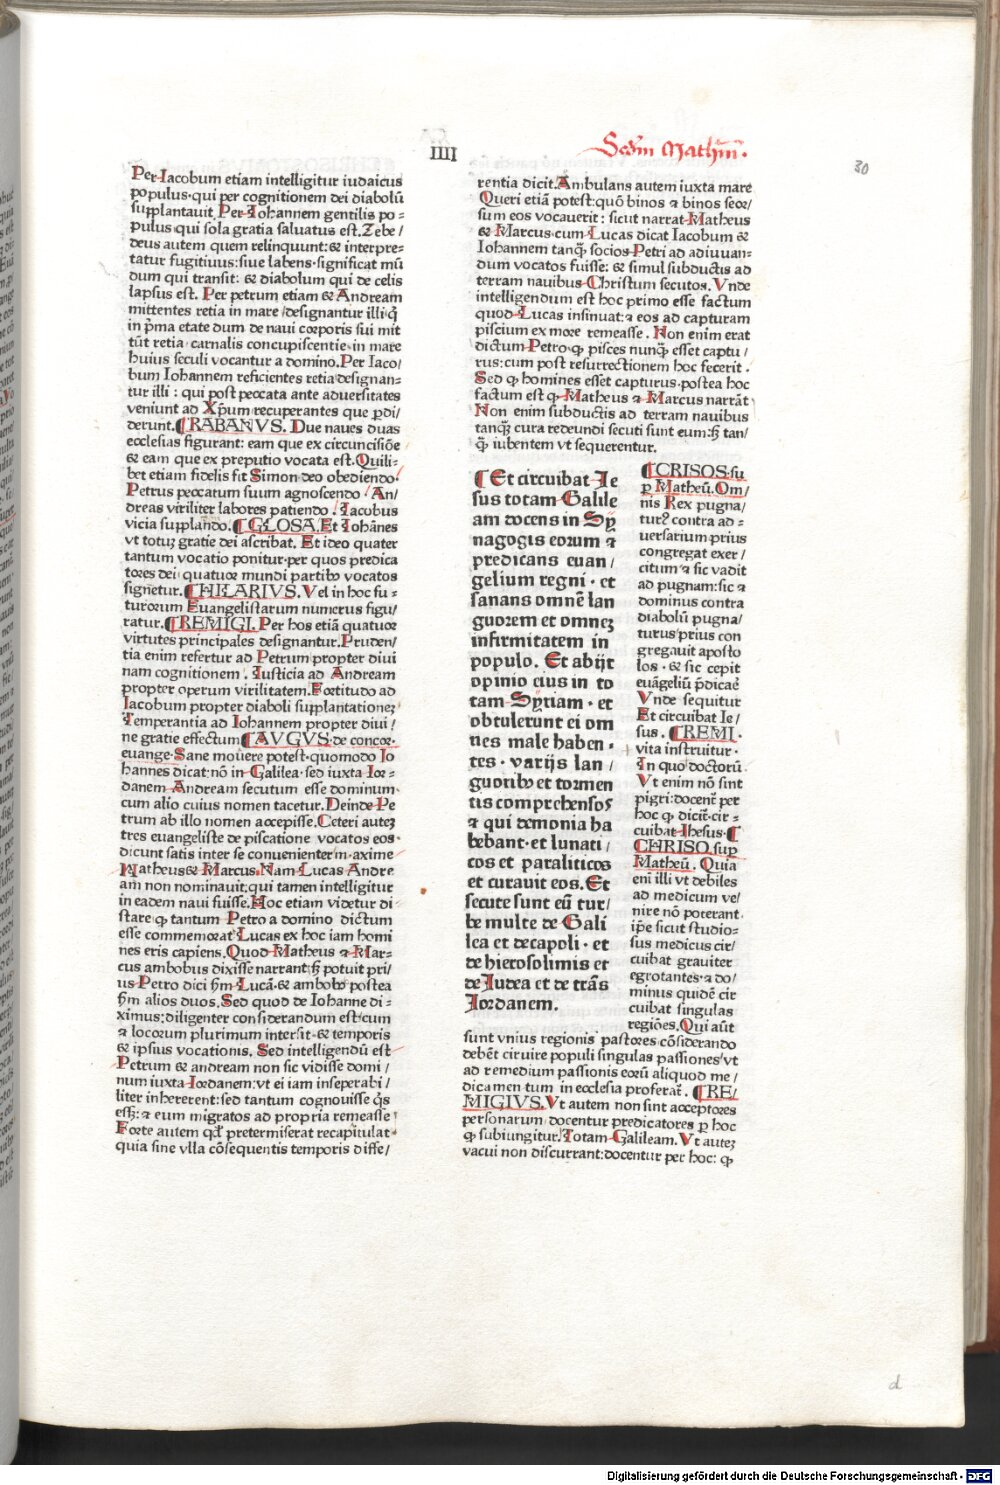 IIII
Scdm Mathm.
30
Per Iacobum etiam intelligitur iudaicus
populus·qui per cognitionem dei diabolū
supplantauit Per Iohannem gentilis po=
pulus qui sola gratia saluatus est.Zebe/
deus autem quem relinquunt:& interpre=
tatur fugitiuus:siue labens·significat mū
dum qui transit: & diabolum qui de celis
lapsus est. Per petrum etiam & Andream
mittentes retia in mare/designantur illi q̄
in p̄ma etate dum de naui corporis sui mit
tūt retia carnalis concupiscentie in mare
huius seculi vocantur a domino.Per Iaco/
bum Iohannem reficientes retia designan=
tur illi: qui post peccata ante aduersitates
veniunt ad Xp̄um recuperantes que p̄di/
derunt.¶RABANVS. Due naues duas
ecclesias figurant: eam que ex circuncisiōe
& eam que ex preputio vocata est.Quili=
bet etiam fidelis fit Simon deo obediendo·
Petrus peccatum suum agnoscendo·An/
dreas viriliter labores patiendo·Iacobus
vicia supplando.¶GLOSA.Et Iohānes
vt totuȝ gratie dei ascribat. Et ideo quater
tantum vocatio ponitur·per quos predica
tores dei quatuor mundi partibꝯ vocatos
signetur.¶HILARIVS.Vel in hoc fu=
turorum Euangelistarum numerus figu/
ratur.¶REMIGI.Per hos etiā quatuor
virtutes principales designantur.Pruden/
tia enim refertur ad Petrum propter diui
nam cognitionem. Iusticia ad Andream
propter operum virilitatem.Fortitudo ad
Iacobum propter diaboli supplantationeȝ
Temperantia ad Iohannem propter diui/
ne gratie effectum¶AVGVS·de concor.
euange·Sane mouere potest·quomodo Io
hannes dicat:nō in Galilea·sed iuxta Ior=
danem Andream secutum esse dominum·
cum alio cuius nomen tacetur.Deinde Pe
trum ab illo nomen accepisse.Ceteri auteȝ
tres euangeliste de piscatione vocatos eos·
dicunt satis inter se conuenienter·m·axime
Matheus& Marcus.Nam Lucas Andre
am non nominauit:qui tamen intelligitur
in eadem naui fuisse.Hoc etiam videtur di
stare ꝙ tantum Petro a domino dictum
esse commemorat Lucas ex hoc iam homi
nes eris capiens.Quod Matheus ⁊ Mar=
cus ambobus dixisse narrant:ſȝ potuit pri/
us Petro dici ſm Lucā·& ambobꝯ postea
ſm alios duos.Sed quod de Iohanne di=
ximus:diligenter considerandum est:cum
⁊ locorum plurimum intersit·& temporis
& ipsius vocationis. Sed intelligendū est
Petrum & andream non sic vidisse domi/
num iuxta Iordanem:vt ei iam inseperabi/
liter inhererent:sed tantum cognouisse q̄s
essȝ:⁊ eum migratos ad propria remeasse
Forte autem qd̄ pretermiserat recapitulat·
quia sine vlla cōsequentis temporis diffe/
rentia dicit.Ambulans autem iuxta mare
Queri etiā potest:quō binos ⁊ binos seor/
sum eos vocauerit: sicut narrat Matheus
& Marcus·cum Lucas dicat Iacobum &
Iohannem tanq̄ socios Petri ad adiuuan=
dum vocatos fuisse: & simul subductis ad
terram nauibus Christum secutos. Vnde
intelligendum est hoc primo esse factum
quod Lucas insinuat:⁊ eos ad capturam
piscium ex more remeasse. Non enim erat
dictum Petro·ꝙ pisces nunq̄ esset captu/
rus:cum post resurrectionem hoc fecerit.
Sed ꝙ homines esset capturus·postea hoc
factum est ꝙ Matheus ⁊ Marcus narrāt
Non enim subductis ad terram nauibus
tanqȝ cura redeundi secuti sunt eum:ſȝ tan/
q̄ iubentem vt sequerentur.
¶Et circuibat Ie
sus totam Galile
am docens in Sy
nagogis eorum ⁊
predicans euan/
gelium regni·et
sanans omnē lan
guorem et omneȝ
infirmitatem in
populo. Et abijt
opinio eius in to
tam Syriam·et
obtulerunt ei om
nes male haben·
tes·varijs lan/
guoribꝯ et tormen
tis comprehensos
⁊ qui demonia ha
bebant·et lunati/
cos et paraliticos
et curauit eos. Et
secute sunt eū tur/
be multe de Gali
lea et decapoli·et
de hierosolimis et
de Iudea et de trās
Iordanem.
¶CRISOS·su
ꝑ Matheū.Om/
nis Rex pugna/
tur⁹ contra ad=
uersarium·prius
congregat exer/
citum·⁊ sic vadit
ad pugnam:sic ⁊
dominus contra
diabolū pugna/
turus prius con
gregauit aposto
los·& sic cepit
euāgeliū p̄dicare
Vnde sequitur
Et circuibat Ie/
sus.¶REMI·
vita instruitur·
In quo doctorū·
Vt enim nō sint
pigri:docent̄ per
hoc ꝙ dicit̄:cir=
cuibat Ihesus·¶
CHRISO.sup
Matheū. Quia
eni illi vt debiles
ad medicum ve/
nire nō poterant·
ip̄e sicut studio=
sus medicus cir/
cuibat grauiter
egrotantes·⁊ do/
minus quidē cir
cuibat singulas
regiōes.Qui aūt
sunt vnius regionis pastores cōsiderando
debēt circuire populi singulas passiones vt
ad remedium passionis eorū aliquod me/
dicamen tum in ecclesia proferat̄. ¶RE/
MIGIVS.Vt autem non sint acceptores
personarum docentur predicatores ꝑ hoc
ꝙ subiungitur Totam Galileam. Vt auteȝ
vacui non discurrant:docentur per hoc: ꝙ
d
Digitalisierung gefördert durch die Deutsche Forschungsgemeinschaft · DFG